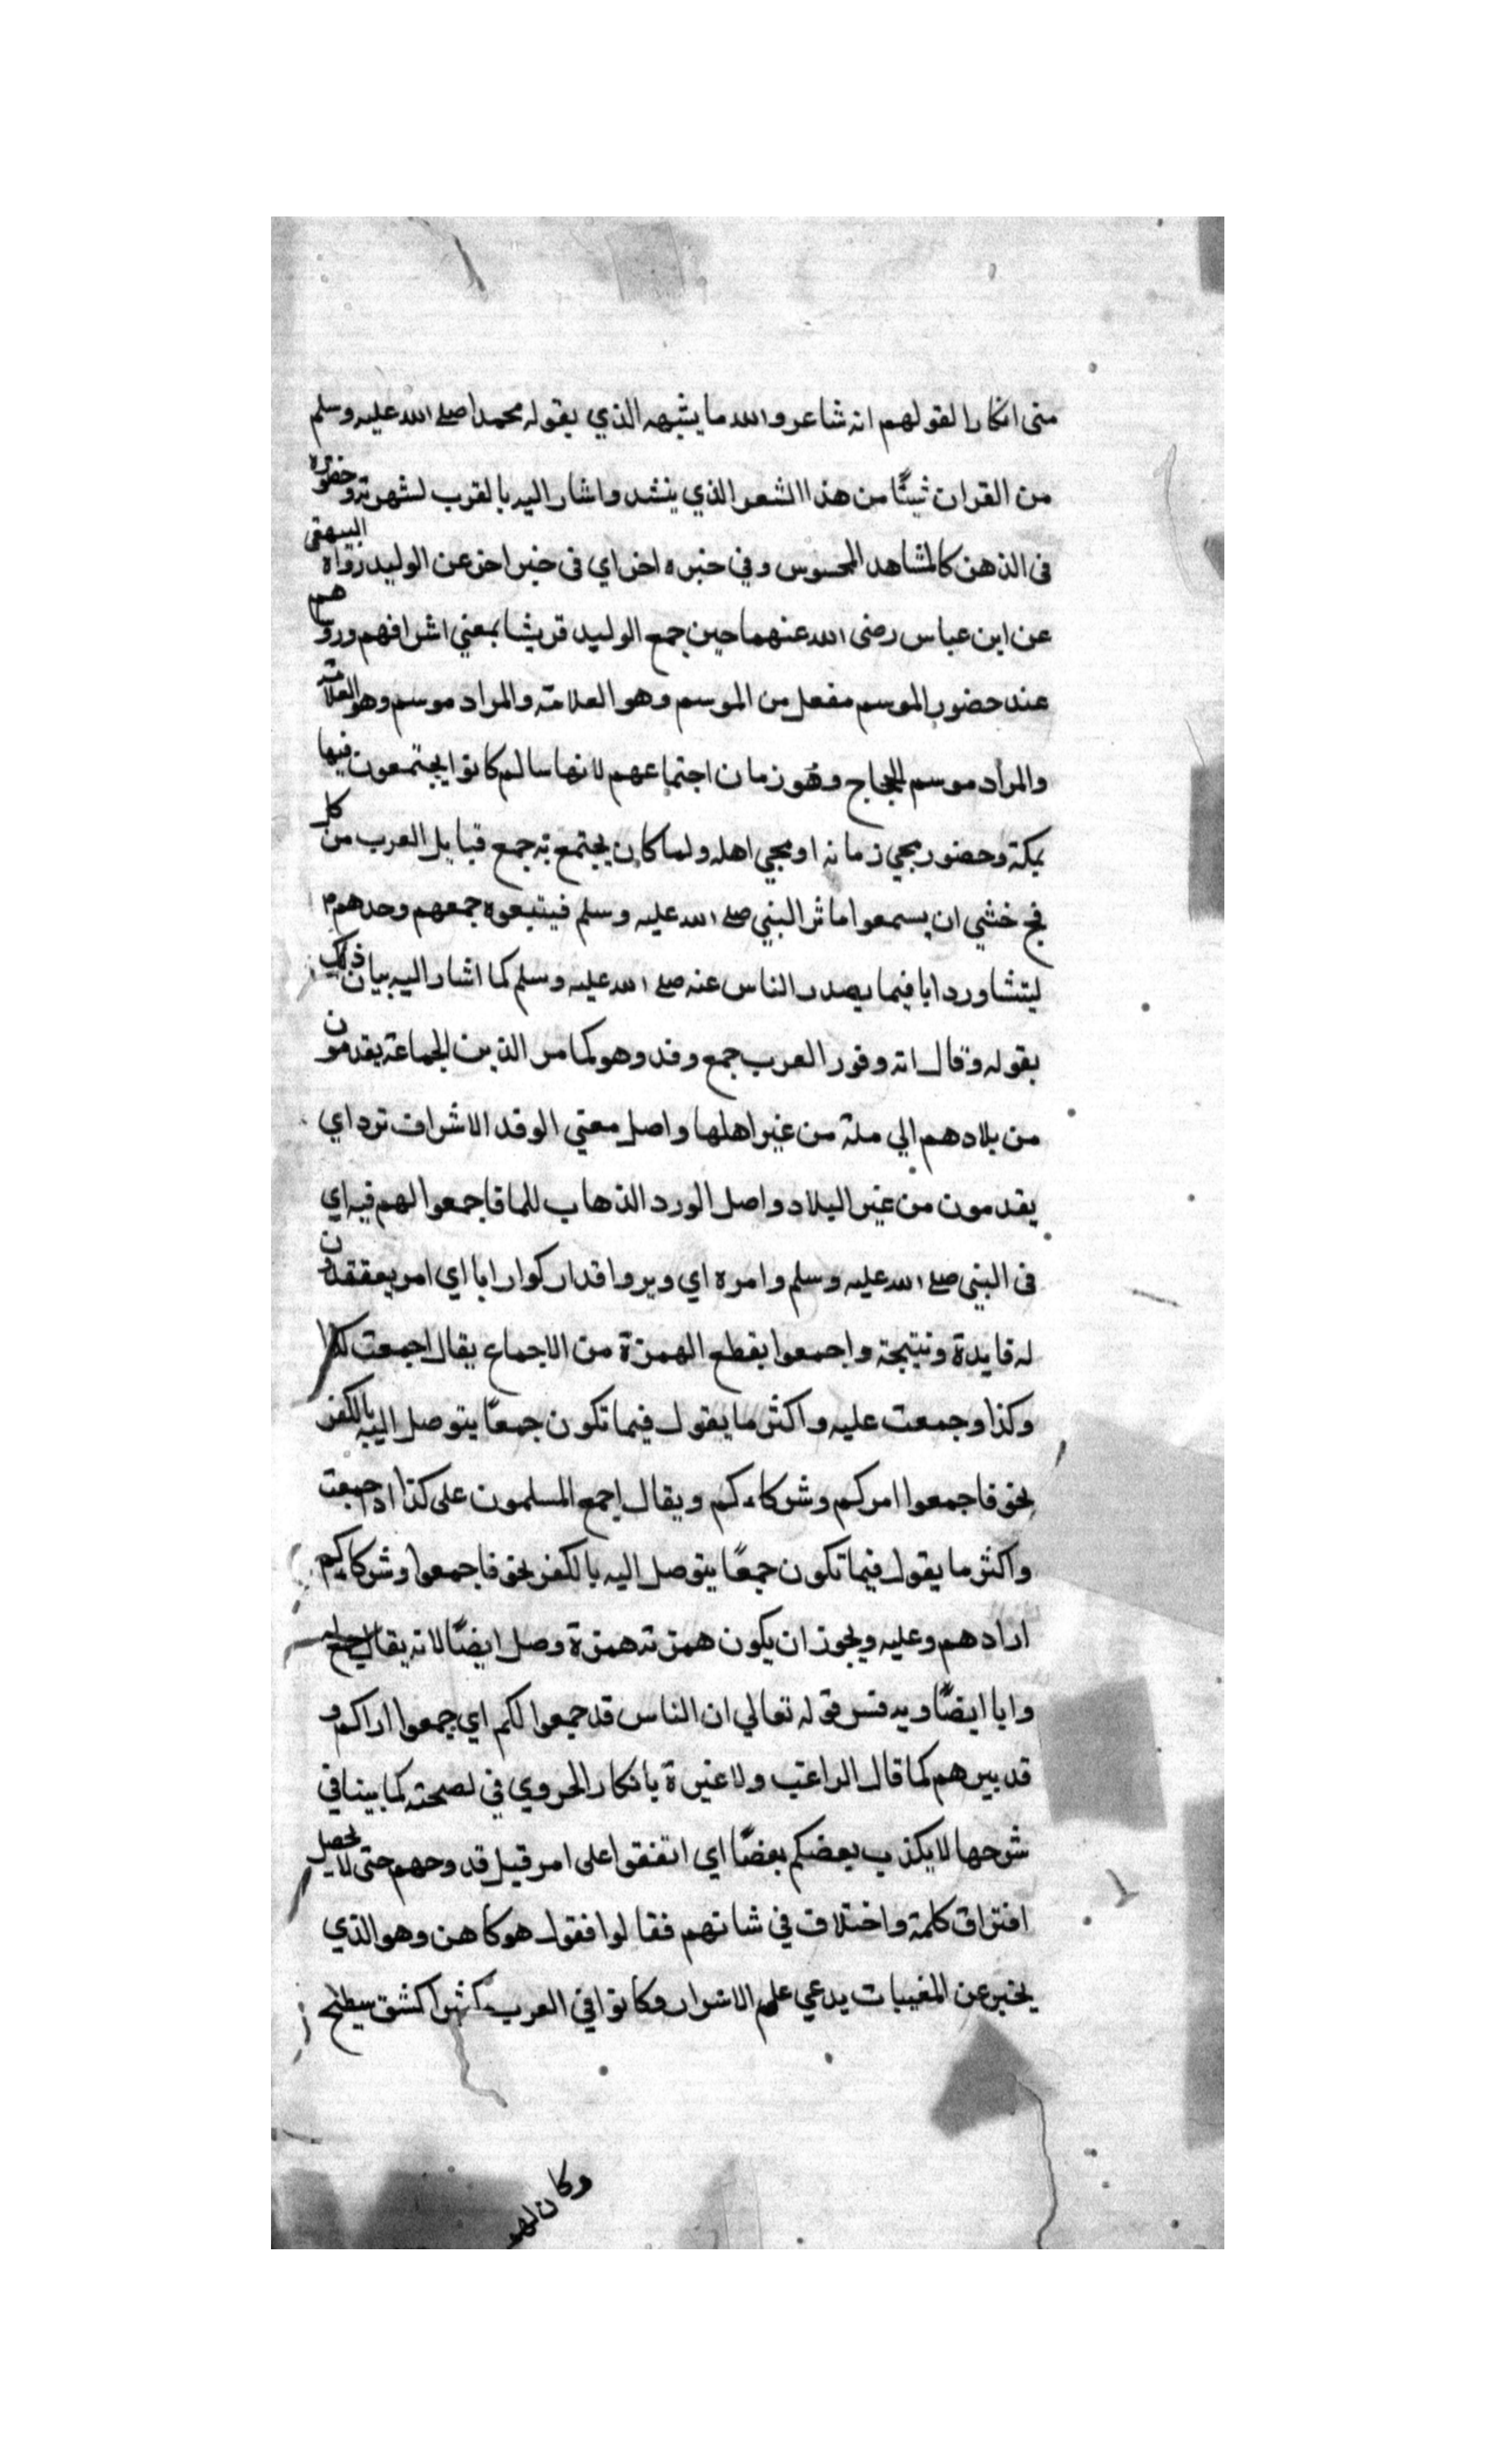 منى انكارا لقولهم انه شاعر والله ما يشبهه الذي يقوله محمدا صلى الله عليه وسلم
من القران شيئًا من هذا الشعر الذي ينشد واشار اليه بالقرب لشهرته وحضوره
فى الذهن كالمشاهد المحسوس وفي خبره اخر اي فى خبر اخر عن الوليد رواه البيهقى
عن ابن عباس رضى الله عنهما حين جمع الوليد قريشا بمعني اشرافهم وروساهم
عند حضور الموسم مفعل من الموسم وهو العلامة والمراد موسم وهو العلامة
والمراد موسم الحجاج وهو زمان اجتماعهم لانها سالم كانوا يجتمعون فيها
بمكة وحضور مجي زمانه او مجي اهله ولما كان يجتمع به جمع قبايل العرب من كل
فج خشي ان يسمعوا ماثر النبي صلى الله عليه وسلم فيتبعوه جمعهم وحدهم
ليتشاورد ابا فيما يصدر الناس عنه صلى الله عليه وسلم كما اشار اليه بيان ذلك
بقوله وقال انه وفور العرب جمع وفد وهو كما مر الذين الجماعة يقدمون
من بلادهم الي ملة من غير اهلها واصل معني الوفد الاشراف ترد اي
يقدمون من غير البلاد واصل الورد الذهاب للما فاجمعوا لهم فيه اي
فى النبي صلى الله عليه وسلم وامره اي ويروا قدار كوا رابا اي امر يعقدون
له فايدة ونتيجة واجمعوا بقطع الهمزة من الاجماع يقال اجمعت كذا
وكذا وجمعت عليه واكثر ما يقول فيما تكون جمعًا يتوصل اليه بالكفر
نحو فاجمعوا امركم وشركاءكم ويقال اجمع المسلمون على كذا اذ اجمعت
واكثر ما يقول فيما تكون جمعًا يتوصل اليه بالكفر نحو فاجمعوا وشركاءكم
اراد هم وعليه ويجوز ان يكون همزته همزة وصل ايضًا لانه يقال
وابا ايضًا وبه فسر قوله تعالي ان الناس قد جمعوا لكم اي جمعوا اراكم و
قد بيرهم كما قال الراغب ولا عبرة بانكار الحروي في لصحته كما بينا في
شرحها لا يكذب بعضكم بعضًا اي اتفقوا على امر قبل قد وحهم حتى لا يحصل
افتراق كلمة واختلاف في شانهم فقالوا فقول هو كاهن وهو الذي
يخبر عن المغيبات يدعي علم الاسرار وكانوا في العرب كثيرا كشق سيطيح
وكان لهم